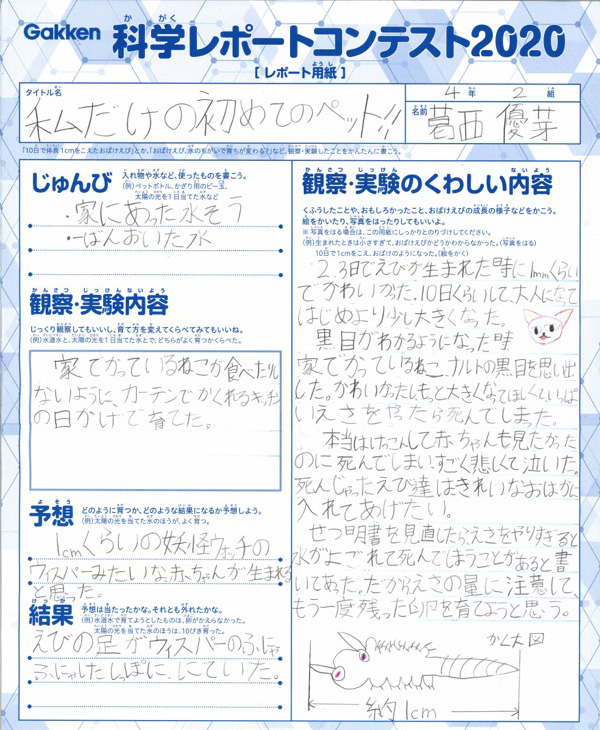 Gakken 科学レポートコンテスト2020
かがく
[ レポート用紙 ]
ようし
タイトル名
私だけの初めてのペット!!
4年 2組
名前 葛西 優芽
「10日で体長1cmをこえたおばけえび」とか、「おばけえび、水のちがいで育ちが変わる?」など、観察・実験したことをかんたんに書こう。
じゅんび
入れ物や水など、使ったものを書こう。
(例)ペットボトル、かざり用のビー玉、
太陽の光を1日当てた水など
・家にあった水そう
・一ばんおいた水
かんさつ じっけんないよう
観察・実験内容
じっくり観察してもいいし、育て方を変えてくらべてみてもいいね。
(例)水道水と、太陽の光を1日当てた水と、どちらがよく育つかくらべた。
家でかっているねこが食べたりし
ないように、カーテンでかくれるキッチン
の日かげで育てた。
よそう
予想
どのように育つか、どのような結果になるか予想しよう。
(例)太陽の光を当てた水のほうが、よく育つ。
1cmくらいの妖怪ウォッチの
ウィスパーみたいな赤ちゃんが生まれる
と思った。
けっか
結果
予想は当たったかな。それとも外れたかな。
(例)水道水で育てようとしたものは、卵がかえらなかった。
太陽の光を当てた水のほうは、10ぴき育った。
えびの足がウィスパーのふにゃ
ふにゃしたしっぽに、にていた。
かんさつ じっけん ないよう
観察・実験のくわしい内容
くふうしたことや、おもしろかったこと、おばけえびの成長の様子などをかこう。
絵をかいたり、写真をはったりしてもいいよ。
※ 写真をはる場合は、この用紙にしっかりとのりづけしてください。
(例)生まれたときは小さすぎて、おばけえびかどうかわからなかった。(写真をはる)
10日で1cmこえ、おばけのようになった。(絵をかく)
2、3日でえびが生まれた時に1mmくらい
でかわいかった。10日くらいして、大人になって
はじめより少し大きくなった。
黒目がわかるようになった時
家でかっているねこ、ナルトの黒目を思い出
した。かわいかったし、もっと大きくなってほしくていっぱ
いえさをやったら死んでしまった。
本当はけっこんして赤ちゃんも見たかった
のに死んでしまい、すごく悲しくて泣いた。
死んじゃったえび達はきれいなおはかに
入れてあげたい。
せつ明書を見直したらえさをやりすぎると
水がよごれて死んでしまうことがあると書
いてあった。だからえさの量に注意して、
もう一度残った卵を育てようと思う。
かく大図
約1cm